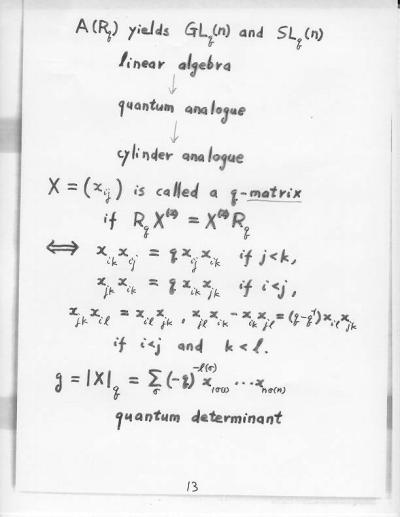 A(R_q) yields GL_q(n) and SL_q(n)
linear algebra
↓
quantum analogue
↓
cylinder analogue
X = (x_ij) is called a q-matrix
if R_q X^(2) = X^(2) R_q
⟺ x_ik x_ij = q x_ij x_ik if j<k,
x_jk x_ik = q x_ik x_jk if i<j,
x_jk x_il = x_il x_jk, x_jl x_ik - x_ik x_jl = (q-q^-1) x_il x_jk
if i<j and k<l.
g = |X|_q = Σ_σ (-q)^-l(σ) x_1σ(1) ⋯ x_nσ(n)
quantum determinant
13